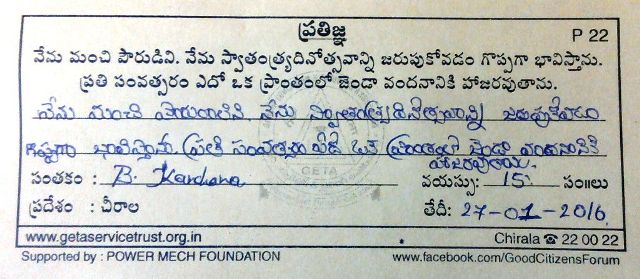 ప్రతిజ్ఞ
P 22
నేను మంచి పౌరుడిని. నేను స్వాతంత్ర్యదినోత్సవాన్ని జరుపుకోవడం గొప్పగా భావిస్తాను.
ప్రతి సంవత్సరం ఎదో ఒక ప్రాంతంలో జెండా వందనానికి హాజరవుతాను.
నేను మంచి పౌరుడిని. నేను స్వాతంత్ర్యదినోత్సవాన్ని జరుపుకోవడం
గొప్పగా భావిస్తాను. ప్రతి సంవత్సరం ఎదో ఒక ప్రాంతంలో జెండా వందనానికి
హాజరవుతాను.
GETA
సంతకం : B.
వయస్సు: 15 సం॥లు
ప్రదేశం : చీరాల
తేదీ: 27-01-2016
www.getaservicetrust.org.in
Chirala ☎ 22 00 22
Supported by : POWER MECH FOUNDATION
www.facebook.com/GoodCitizensForum